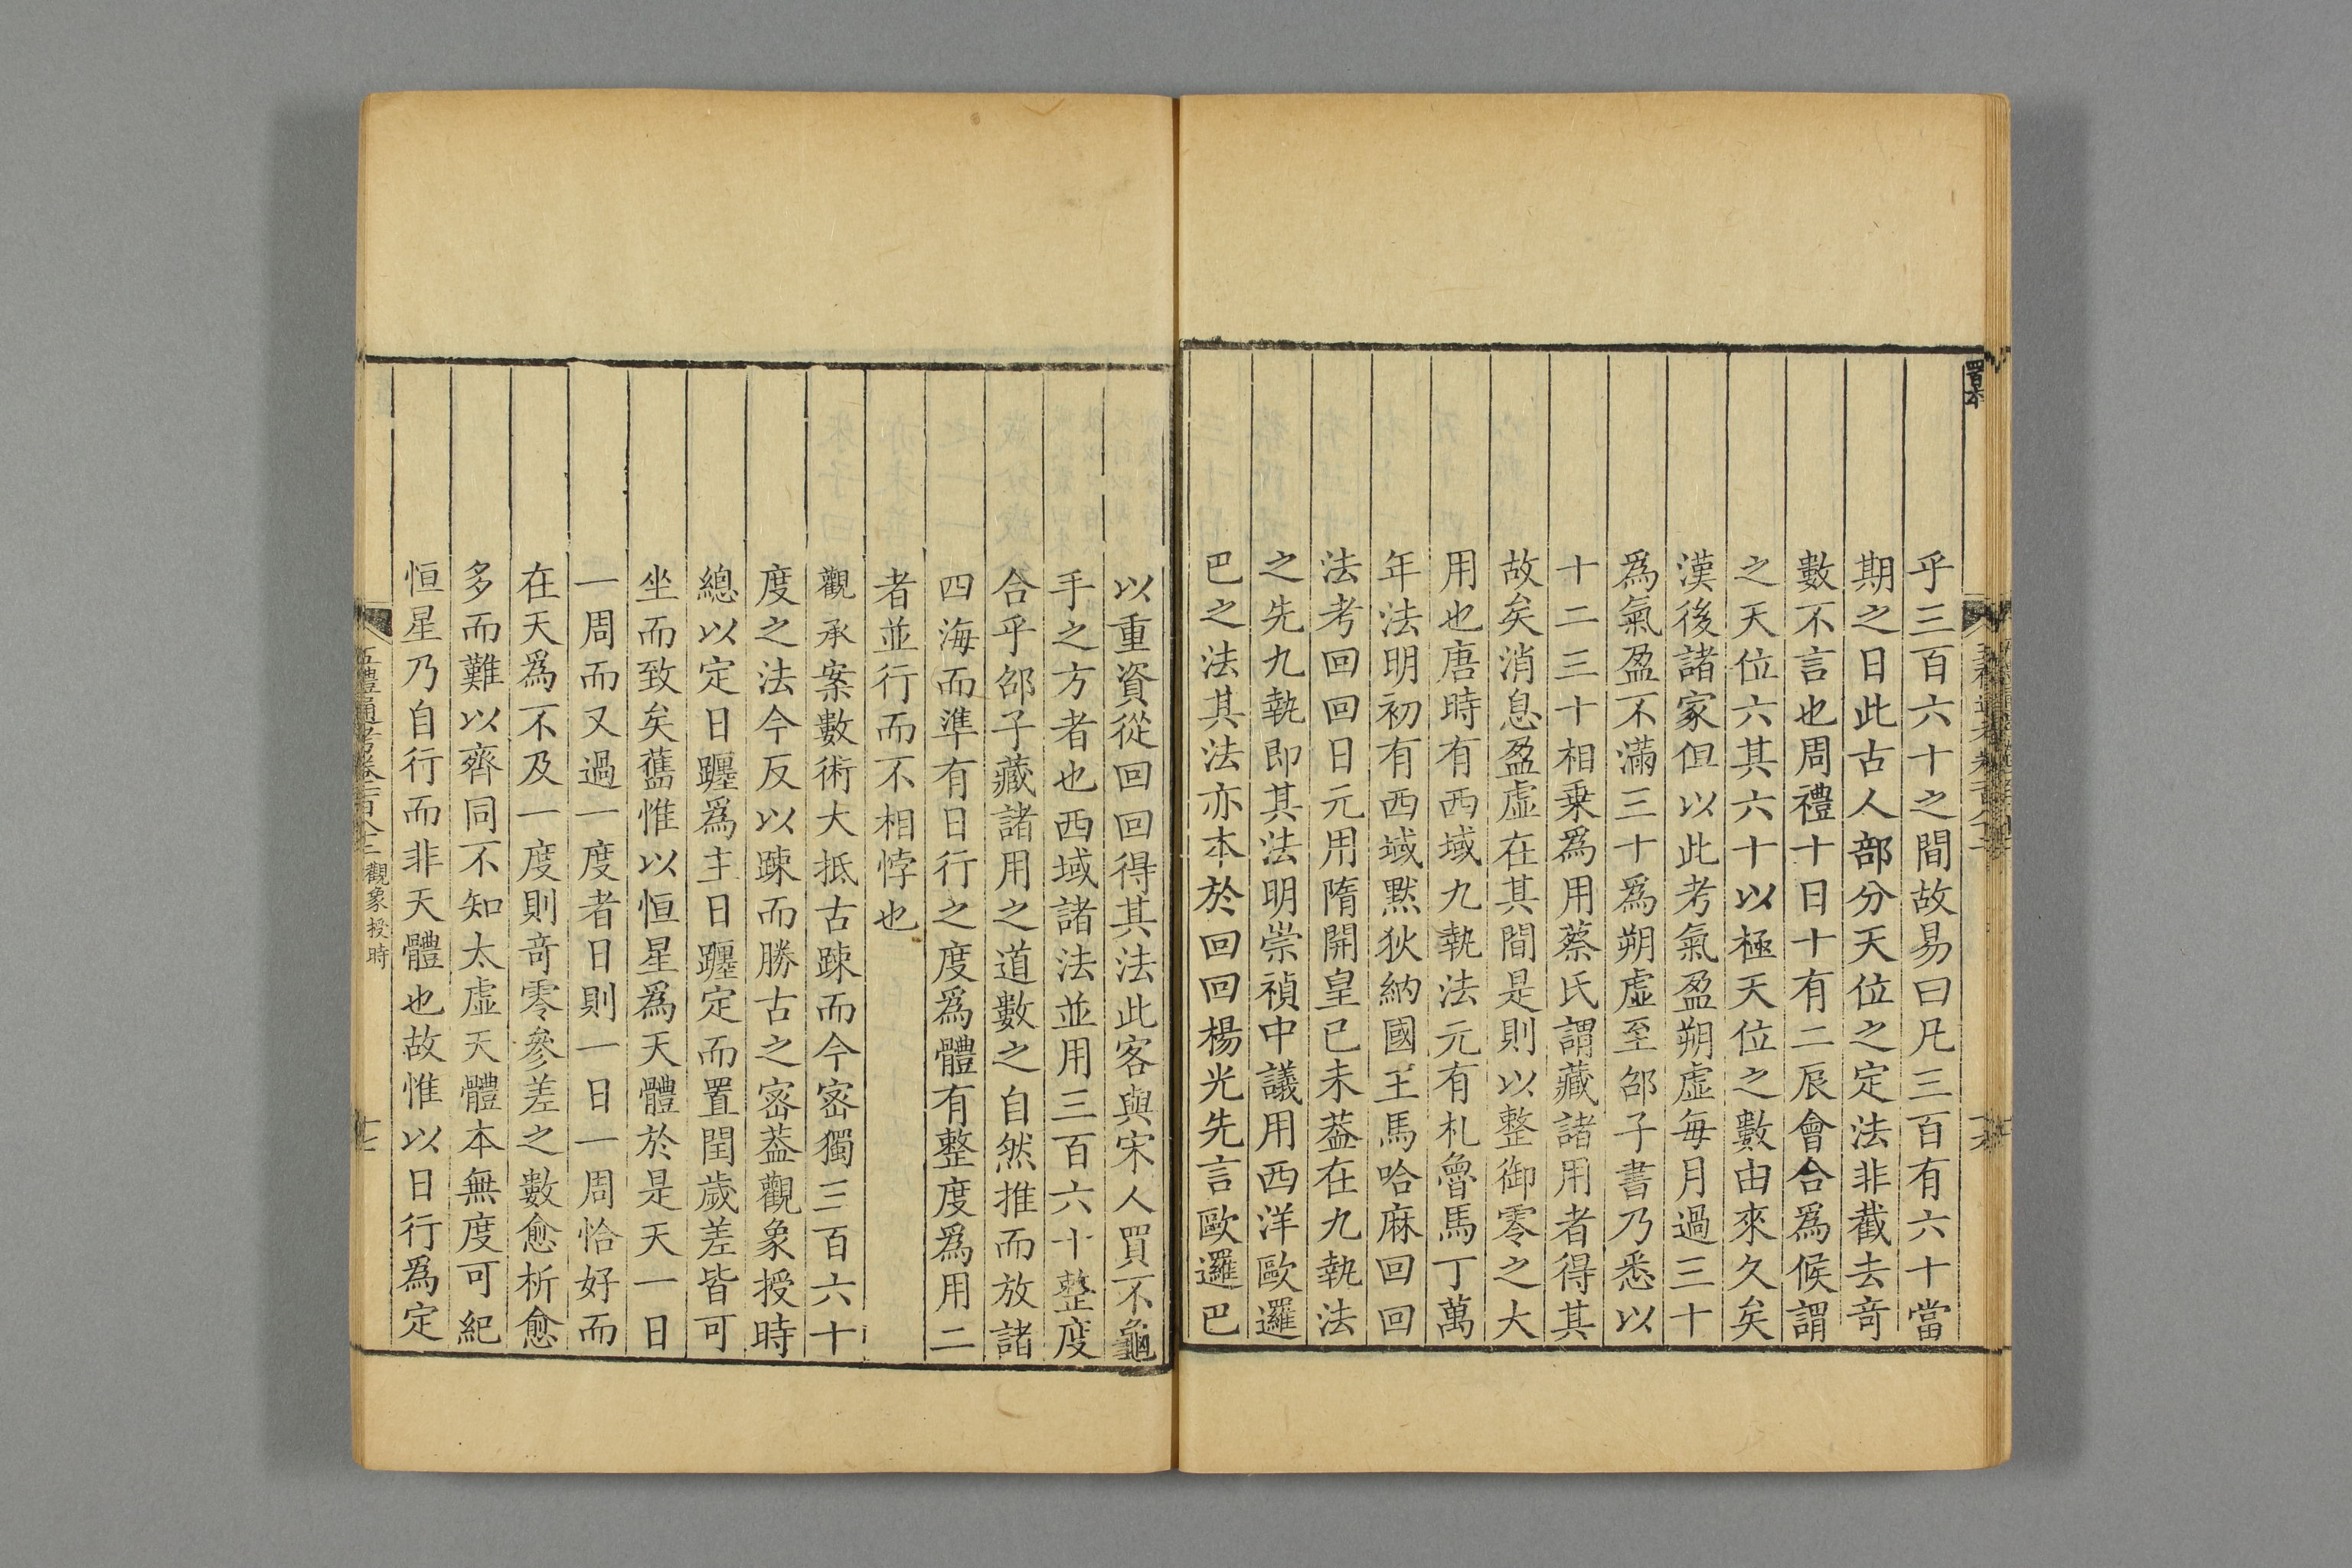 乎三百六十之間故易曰凡三百有六十當
期之日此古人部分天位之定法非截去竒
數不言也周禮十日十有二辰會合爲候謂
之天位六其六十以極天位之數由來久矣
漢後諸家但以此考氣盈朔虛每月過三十
爲氣盈不滿三十爲朔虛至邵子書乃悉以
十二三十相乗爲用蔡氏謂藏諸用者得其
故矣消息盈虛在其間是則以整御零之大
用也唐時有西域九執法元有札魯馬丁萬
年法明初有西域黙狄納國王馬哈麻回回
法考回回日元用隋開皇已未葢在九執法
之先九執即其法明崇禎中議用西洋歐邏
巴之法其法亦本於回回楊光先言歐邏巴
以重資從回回得其法此客與宋人買不龜
手之方者也西域諸法並用三百六十整度
合乎邵子藏諸用之道數之自然推而放諸
四海而準有日行之度爲體有整度爲用二
者並行而不相悖也
觀承案數術大抵古踈而今宻獨三百六十
度之法今反以踈而勝古之宻葢觀象授時
總以定日躔爲主日躔定而置閏歲差皆可
坐而致矣舊惟以恒星爲天體於是天一日
一周而又過一度者日則一日一周恰好而
在天爲不及一度則竒零參差之數愈析愈
多而難以齊同不知太虛天體本無度可紀
恒星乃自行而非天體也故惟以日行爲定
五禮通考卷一百八十二 觀象授時 十七